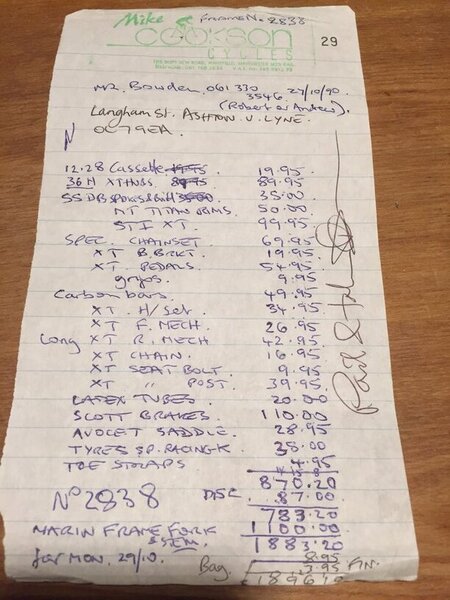 Mike FRAME No. 2838
cookson
CYCLES 29
MR. Bowden 061 330
3546 27/10/90
(Robert or Andrew).
Langham St. ASHTON. U. LYNE.
N OL79EA.
12.28 Cassette 19.95 19.95
36H XT HUBS 89.95 89.95
SS DB SPOKES & build 35.00 35.00
MT TITAN RIMS 50.00
STI XT 99.95
SPEC. CHAINSET 69.95
XT B.BRKT. 19.95
XT PEDALS 54.95
grips 9.95
Carbon bars 49.95
XT H/Set 34.95
XT F. MECH 26.95
Long XT R. MECH 42.95
XT CHAIN. 16.95
XT SEAT BOLT. 9.95
XT " POST. 39.95
LATEX TUBES 20.00
SCOTT BRAKES 110.00
AVOCET SADDLE. 28.95
TYRES SP. RACING-K 38.00
TOE STRAPS 4.95
870.20
No 2838 DISC. 87.00
783.20
MARIN FRAME FORK 1100.00
& STEM. 1883.20
for MON. 29/10. 8.95 FIN.
Bag. 3.95
1896.10
Paid